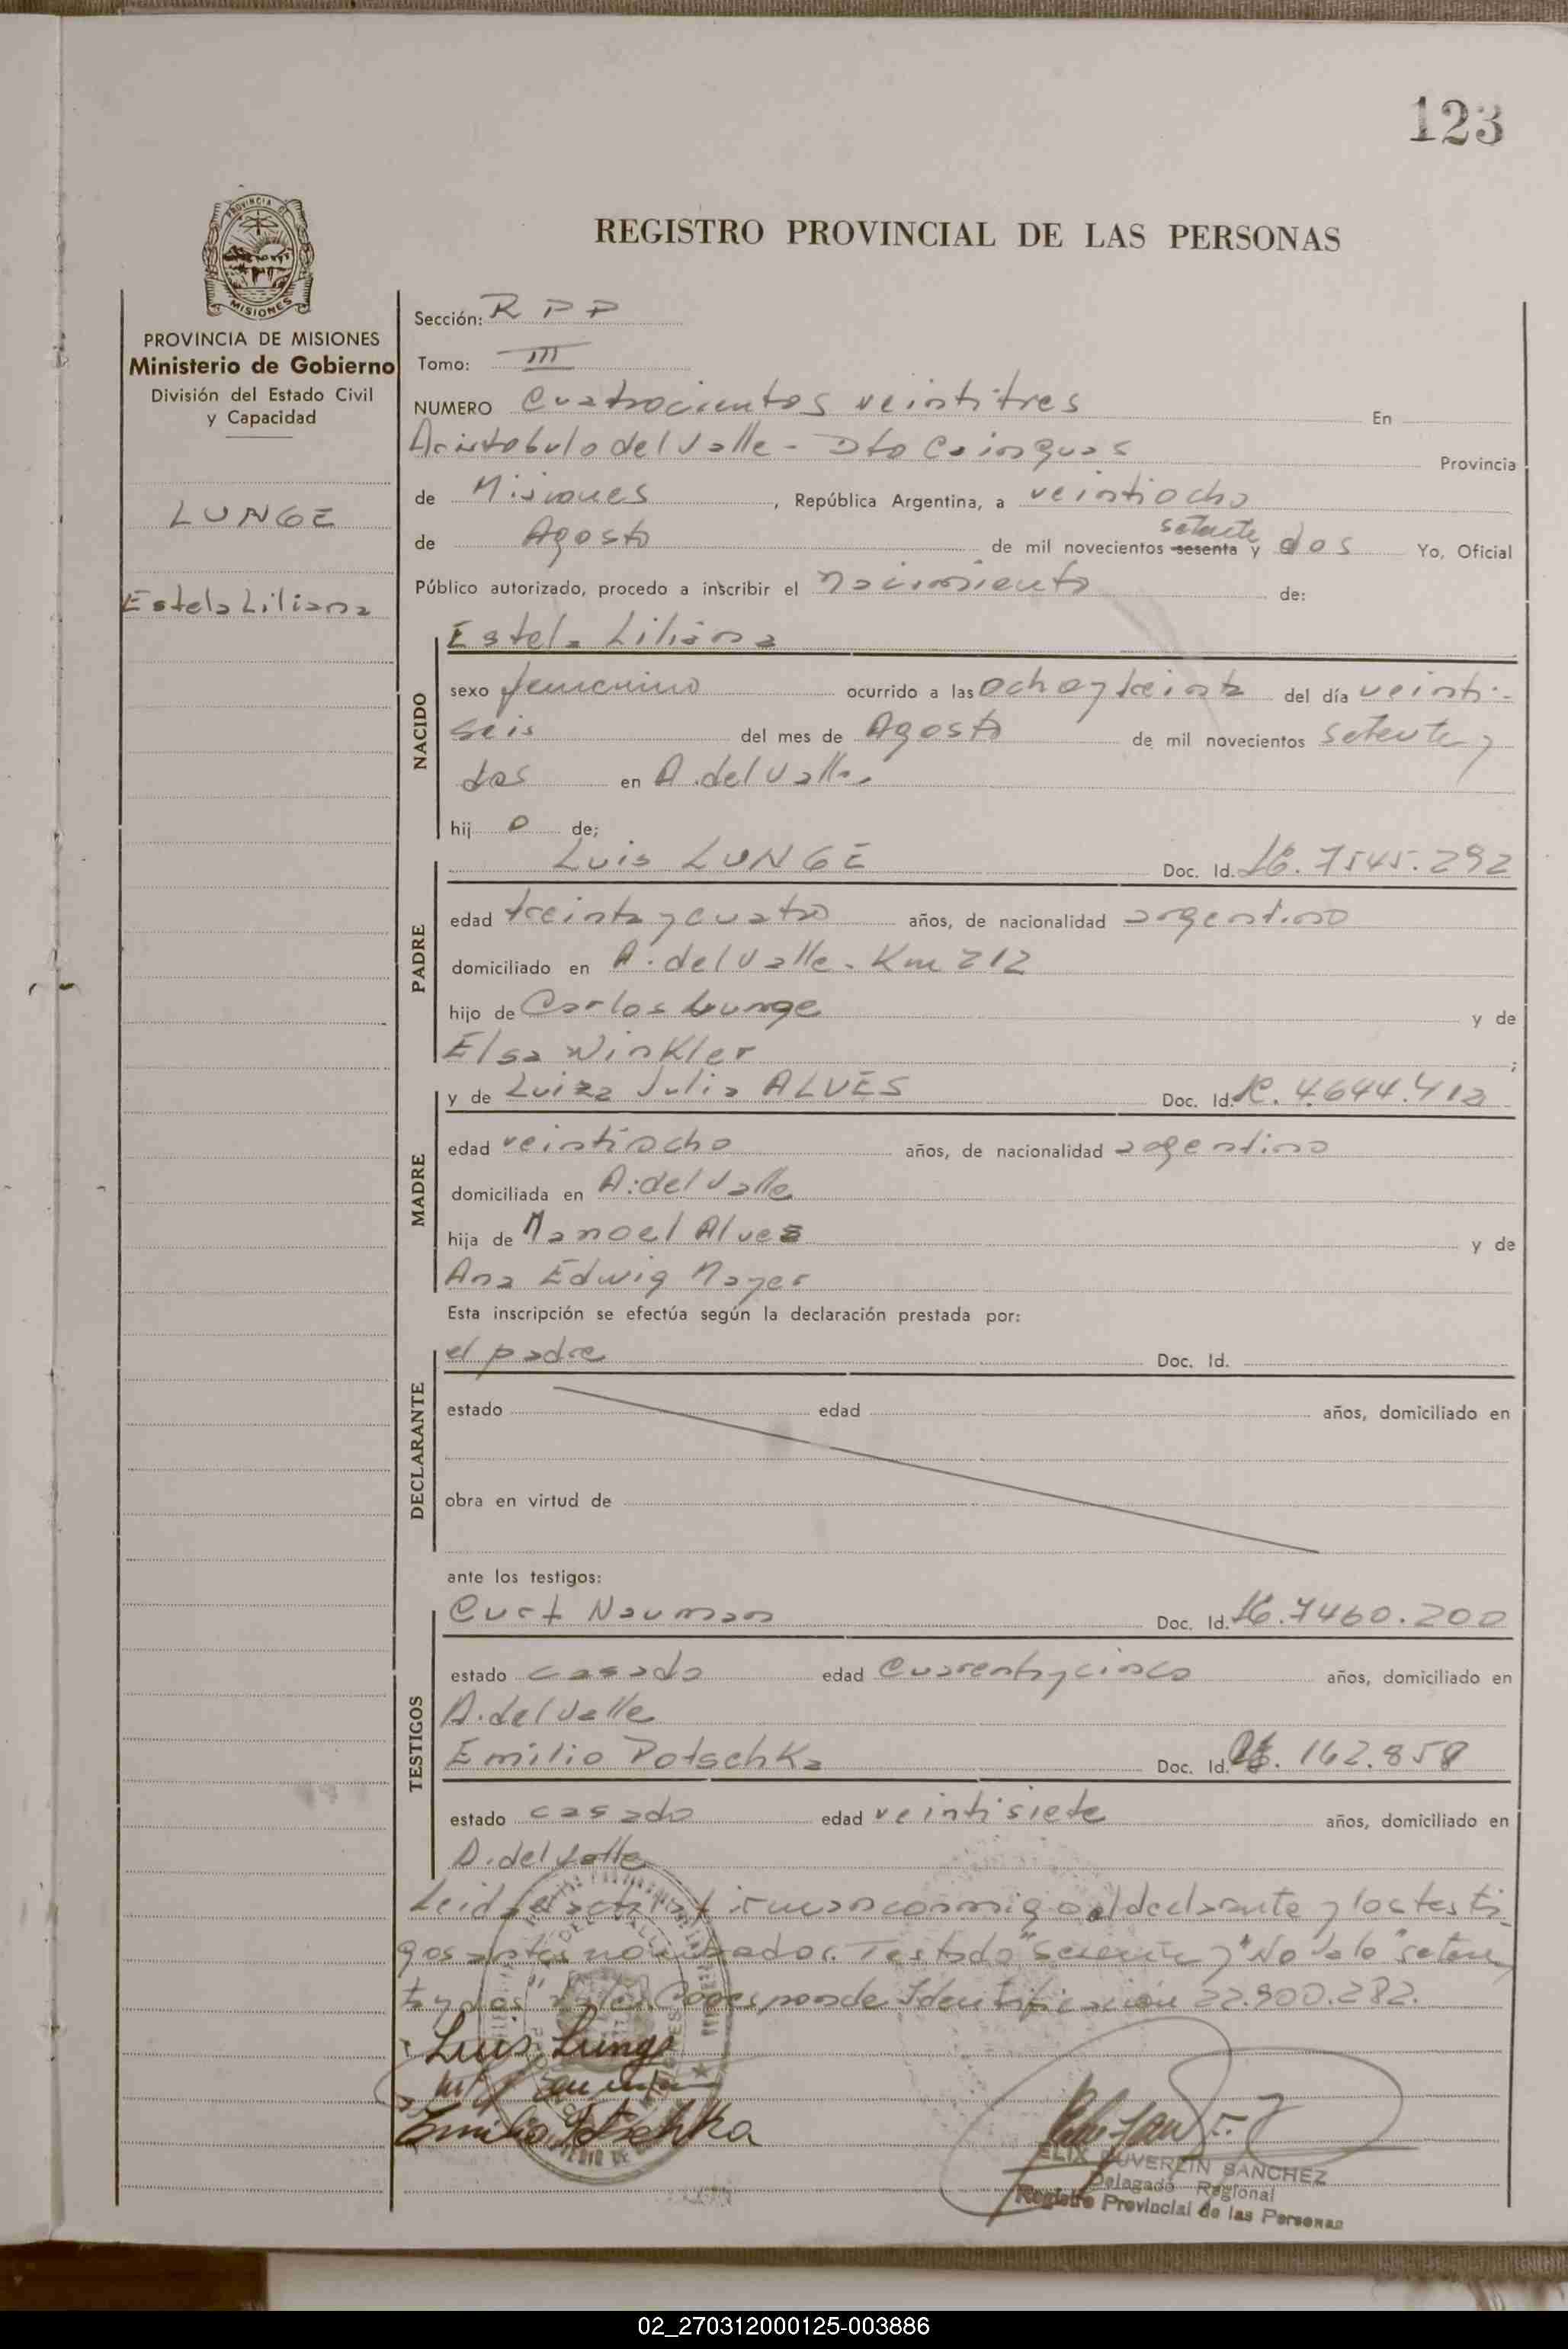 123
PROVINCIA DE
MISIONES
PROVINCIA DE MISIONES
Ministerio de Gobierno
División del Estado Civil
y Capacidad
LUNGE
Estela Liliana
REGISTRO PROVINCIAL DE LAS PERSONAS
Sección: R P P
Tomo: III
NUMERO Cuatrocientos veintitres En
Aristobulo del Valle - Dto Cainguas Provincia
de Misiones, República Argentina, a veintiocho
setenta
de Agosto de mil novecientos sesenta y dos Yo, Oficial
Público autorizado, procedo a inscribir el nacimiento de:
Estela Liliana
NACIDO
sexo femenino ocurrido a las ocho y treinta del día veinti-
seis del mes de Agosto de mil novecientos setenta y
dos en A. del Valle.
hij o de;
PADRE
Luis LUNGE Doc. Id. 7545.292
edad treinta y cuatro años, de nacionalidad argentino
domiciliado en A. del Valle - Km 212
hijo de Carlos Lunge y de
Elsa Winkler ;
MADRE
y de Luiza Julia ALVES Doc. Id. 4.644.412
edad veintiocho años, de nacionalidad argentino
domiciliada en A. del Valle
hija de Manoel Alves y de
Ana Edwig Mayer
Esta inscripción se efectúa según la declaración prestada por:
DECLARANTE
el padre Doc. Id.
estado edad años, domiciliado en
obra en virtud de
ante los testigos:
TESTIGOS
Curt Nauman Doc. Id. 7460.200
estado casado edad cuarenta y cinco años, domiciliado en
A. del Valle
Emilio Potschka Doc. Id. 162.858
estado casado edad veintisiete años, domiciliado en
A. del Valle
Leida el acta la firman conmigo el declarante y los testi-
gos antes nombrados. Testado "sesenta y" No Vale "seten
ta y dos" Vale. Corresponde Identificación 22.900.282.
Luis Lunge
Emilio Potschka
ELIX DUVERLIN SANCHEZ
Delegado Regional
Registro Provincial de las Personas
02_270312000125-003886